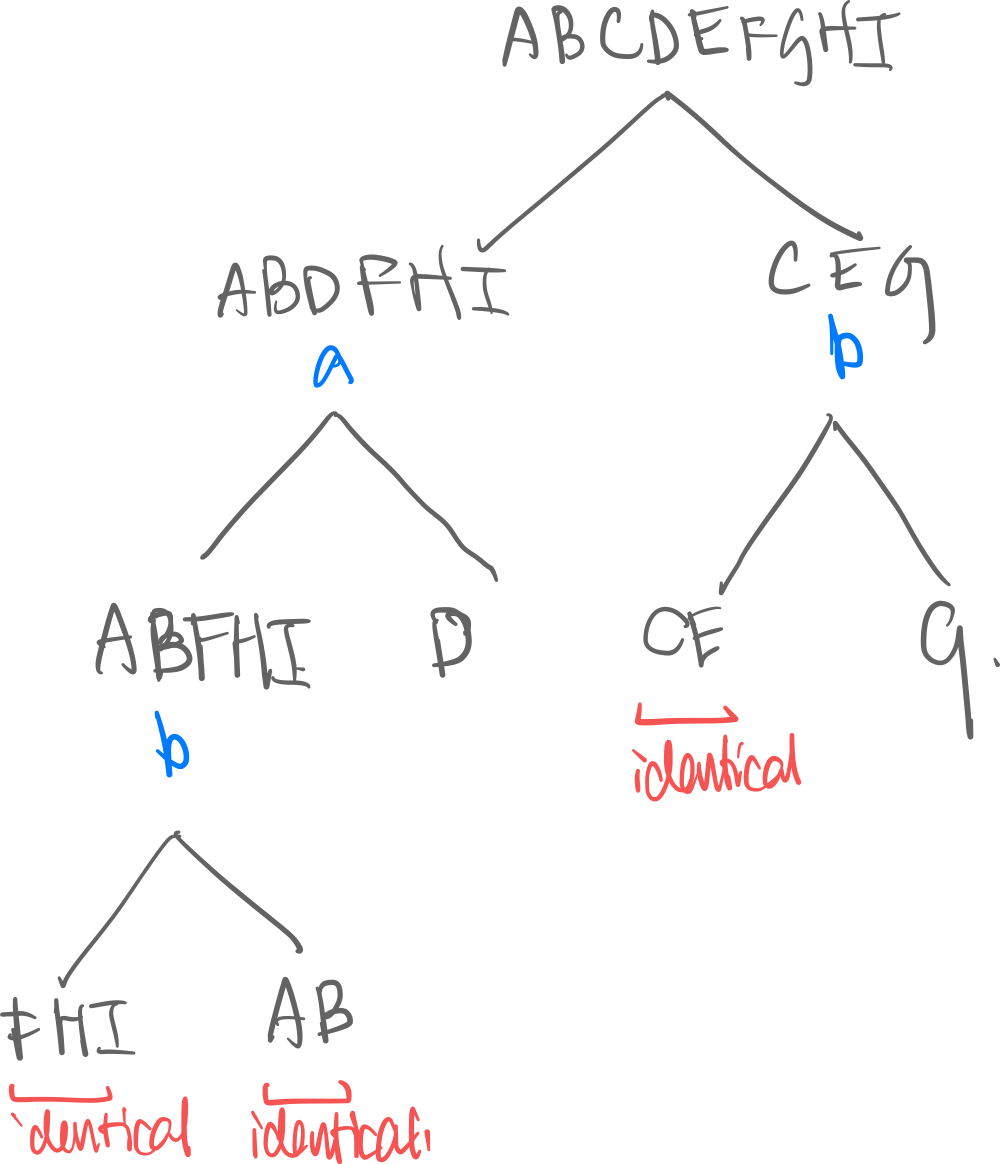 ABCDEFGHI
ABDFHI
CEG
a
b
ABFHI
D
CE
G.
identical
b
FHI
AB
identical
identical